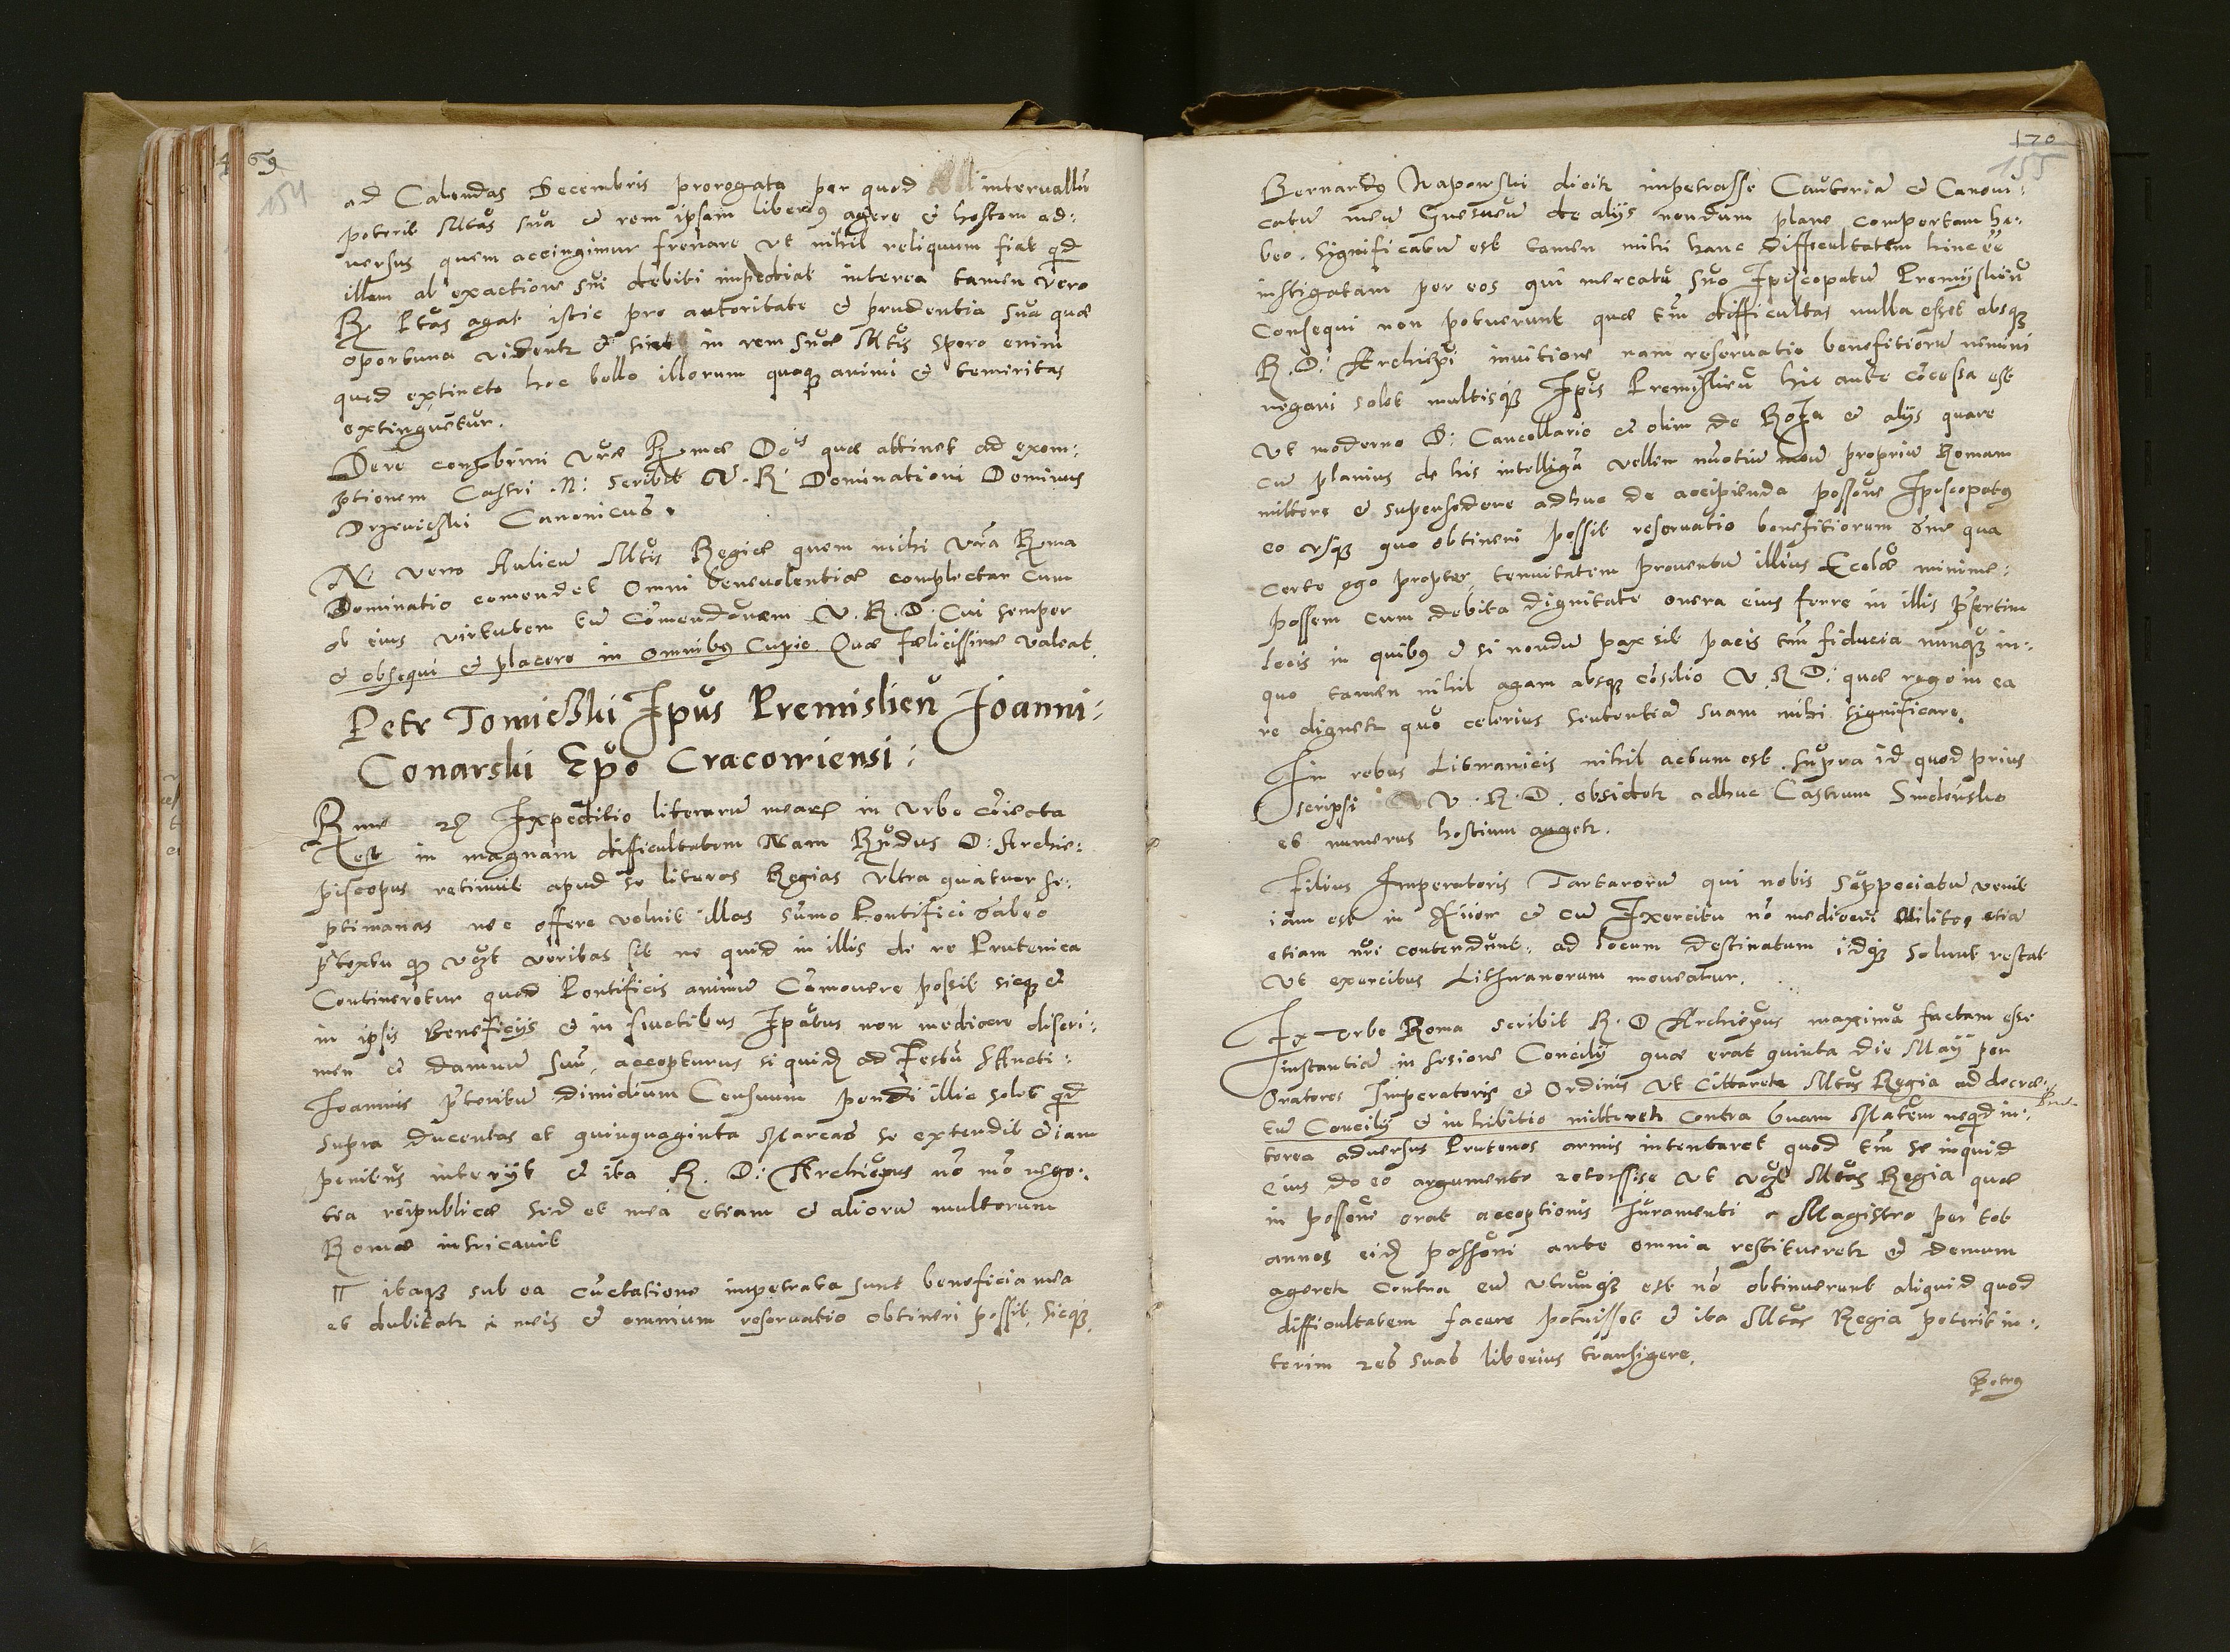 169
154
ad Calendas Decembris prorogata per quod intervallū
poterit Mtas sua et rem ipsam liberius agere et hostem ad:
versus quem accingimur frenare ut nihil reliquum fiat qd
illam ab exactione sui debiti impediat interea tamen vero
R Ptas agat istic pro autoritate et prudentia sua quae
oportuna videntr et sint in rem suae Mtis spero enim
quod extincto hoc bello illorum quoqz animi et temiritas
extinguetur.
De re consobrini vrae Rmae Dōis quae attinet ad exem:
ptionem Castri .N: scribit V. R Dominationi Dominus
Drzevichki Canonicus.
N: vero Aulicū Mtis Regiae quem mihi vra Rma
Dominatio comendet omni benevolentiae complectar cum
ob eius virtutem tū Comendōnem V. R. D. Cui semper
et obsequi et placere in omnibus Cupio Quae faelicissime valeat.
Petr Tomiczki Epūs Premislien Joanni:
Conarski Epō Cracowiensi:
Rme etc Expeditio literarū mearū in urbe Coiecta
est in magnam difficultatem Nam Rndus D: Archie:
piscopus retinuit apud se literas Regias ultra quatuor se:
ptimanas nec offere voluit illas sūmo Pontifici
p̄textu qz veritas sit ne quid in illis de re Prutenica
Contineretur quod Pontificis animū Comovere possit sicqz et
in ipsis Beneficijs et in fructibus Epatus non mediocre discri:
men et damnum suū accepturus si quidē ad Festū Sancti:
Joannis p̄teritū dimidium Censuum pendi illic solet qd
supra ducentas et quinquaginta Marcas se extendit et iam
penitus interijt et ita R. D: Archiepus nō mō nego:
tia reipublicae sed et mea etiam et aliorū multorum
Romae intricavit
itaqz sub ea cūctatione impetrata sunt beneficia mea
et dubitatr a meis et omnium reservatio obtineri possit, sicqz
170
155
Bernardus Wapowski dicitr impetrasse Cantoriā et Canoni:
catū meū Gnesnen de alijs nondum plane compertam ha:
beo. Significatū est tamen mihi hanc difficultatem hinc eē
instigatam per eos qui mercatu suo Episcopatū Premyslien
Consequi non potuerunt quae tm difficultas nulla esset absqz
R. D: Archiepi invitione nam reservatio benefitiorū nemini
negari solet multisqz Epis Premislien hic ante cōcessa est
Ut moderno D: Cancellario et olim de Roza et alijs quare
cū planius de his intelligā vellem nuntiū meū propriū Romam
mittere et supersedere adhuc de accipienda possōne Episcopatus
eo usqz quo obtineri possit reservatio benefitiorum sine qua
certe ego propter tenuitatem proventū illius Ecclae minime:
possem cum debita dignitate onera eius ferre in illis p̄sertim
locis in quibus et si nondū pax sit pacis tm fiducia nunqz in:
quo tamen nihil agam absqz cōsilio V. R D: quae rogo in ea
re dignetr quo celerius Sententiā suam mihi significare.
In rebus Litwanicis nihil actum est supra id quod prius
scripsi V. R. D. obsidetr adhuc Castrum Smolensko
et numerus hostium augetr.
Filius Imperatoris Tartarorū qui nobis suppeciatū venit
iam est in Kiiow et cū Exercitu nō mediocri Milites etiā
etiam nri contendunt: ad locum destinatum idqz solunt restat
Ut exercitus Lithwanorum moveatur.
Ex Urbe Roma scribit R. D Archiepus maximā factam esse
instantiā in sesione Concilij quae erat quinta die Maij per
Oratores Imperatoris et Ordinis ut Cittaretr Mtas Regia ad decrae:
tū Concilij et inhibitio mitteretr contra suam Matem neqd in:
terea adversus Prutenos armis intentaret quod tm se inquid
eius do eo argumento retorssise ut Mtas Regia quae
in possōne erat acceptionis Juramenti a Magistro per tot
annos eidē possōni ante omnia restitueretr et demum
ageretr contra eū utrunqz est nō obtinuerunt aliquid quod
difficultatem facere potuisset et ita Mtas Regia poterit in:
terim res suas liberius transigere.
Petrus